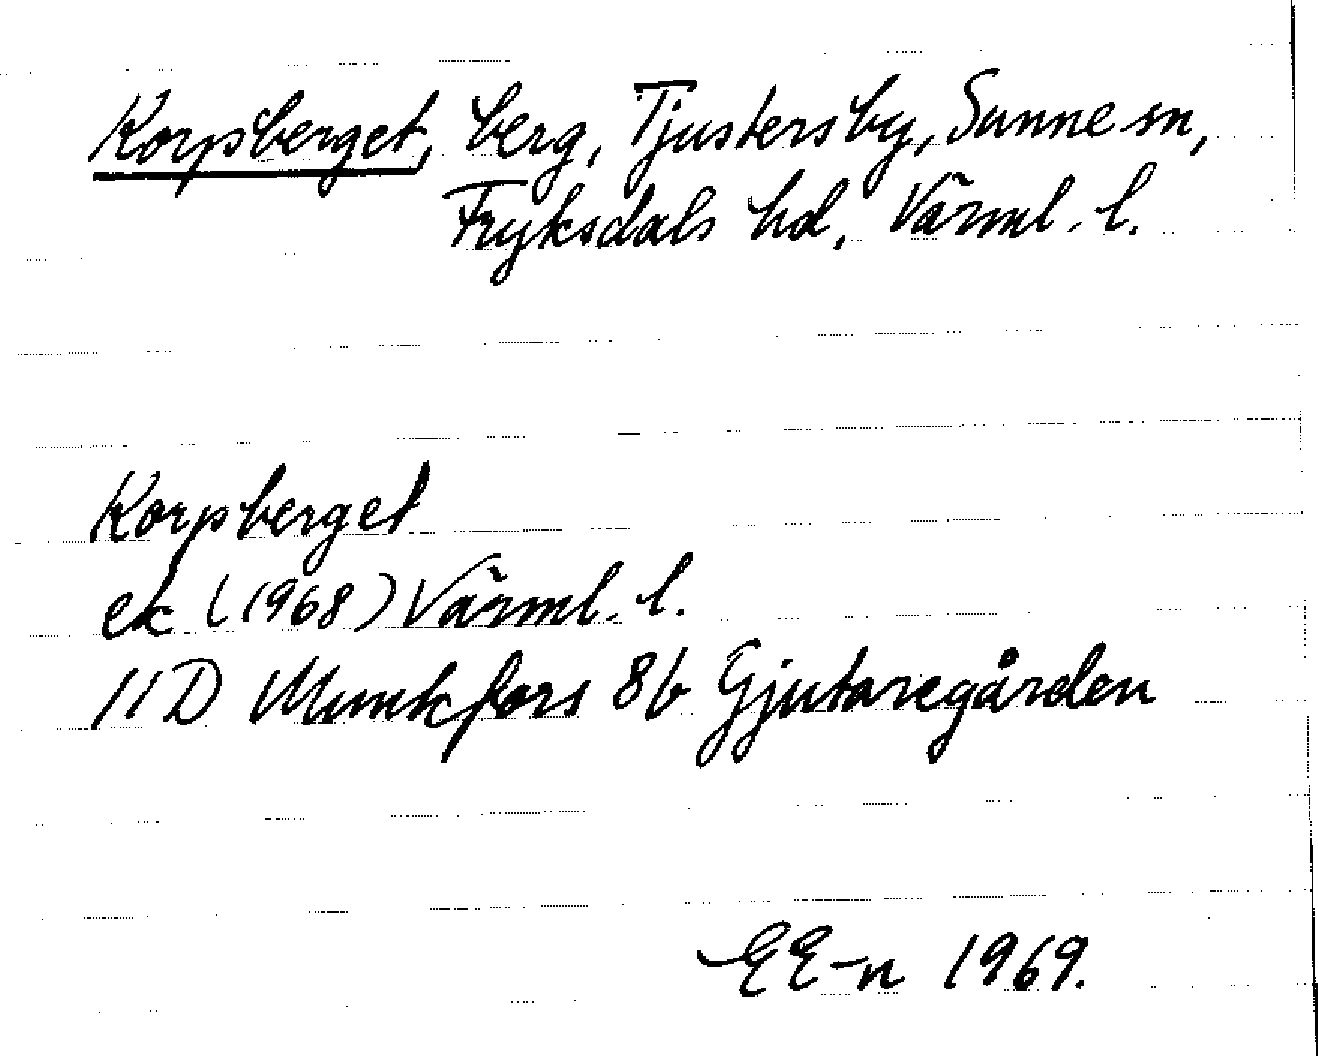 Korpsberget, berg, Tjustersby, Sunne sn,
Fryksdals hd, Värml. l.
Korpberget
ek (1968) Värml. l.
11D Munkfors 8b Gjutaregården
EE-n 1969.